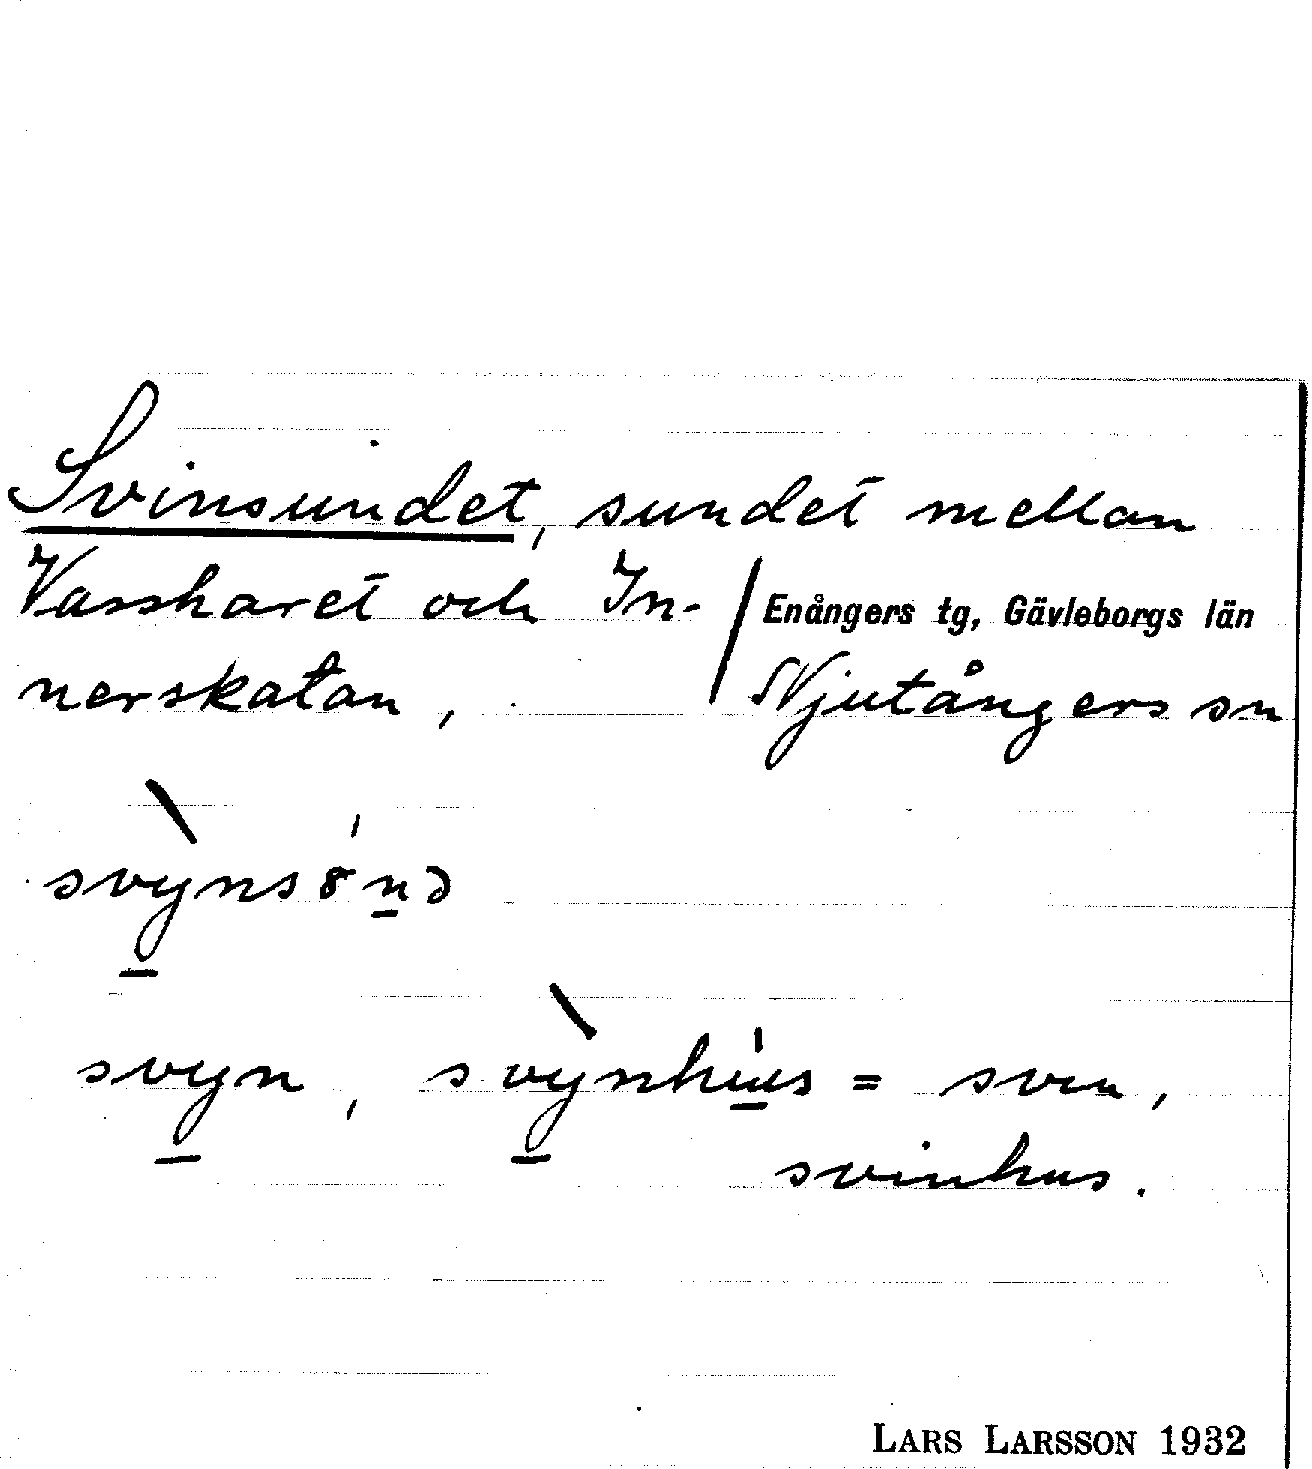 Svinsundet, sundet mellan
Vassharet och In-
nerskatan,
Enångers tg, Gävleborgs län
Njutångers sn
svỳ̲nsȣn̲ə
svy̲n, svỳ̲nhu̲s = svin,
svinhus.
LARS LARSSON 1932